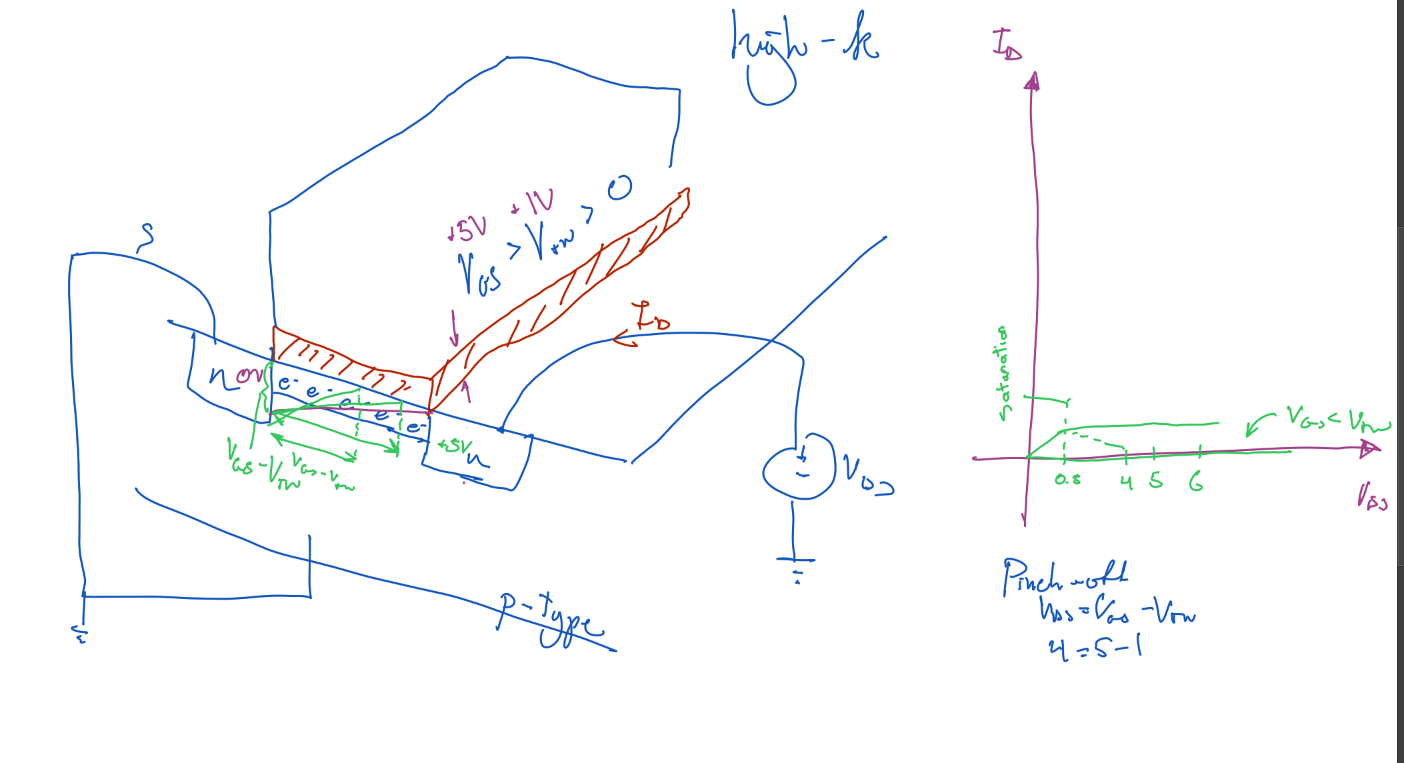 high-k
I_D
+5V +1V
V_GS > V_TN > 0
S
I_D
n
0V
e- e- e- e- e-
+5V
n
V_GS-V_TN
V_GS-V_TN
V_DS
P-type
Saturation
V_GS < V_TN
0.5 4 5 6
V_DS
Pinch-off
V_DS = V_GS - V_TN
4 = 5 - 1